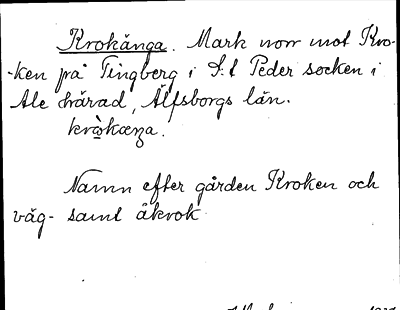 Krokänga. Mark norr mot Kro-
-ken på Tingberg i S:t Peder socken i
Ale härad, Älfsborgs län.
Namn efter gården Kroken och
väg- samt åkrok